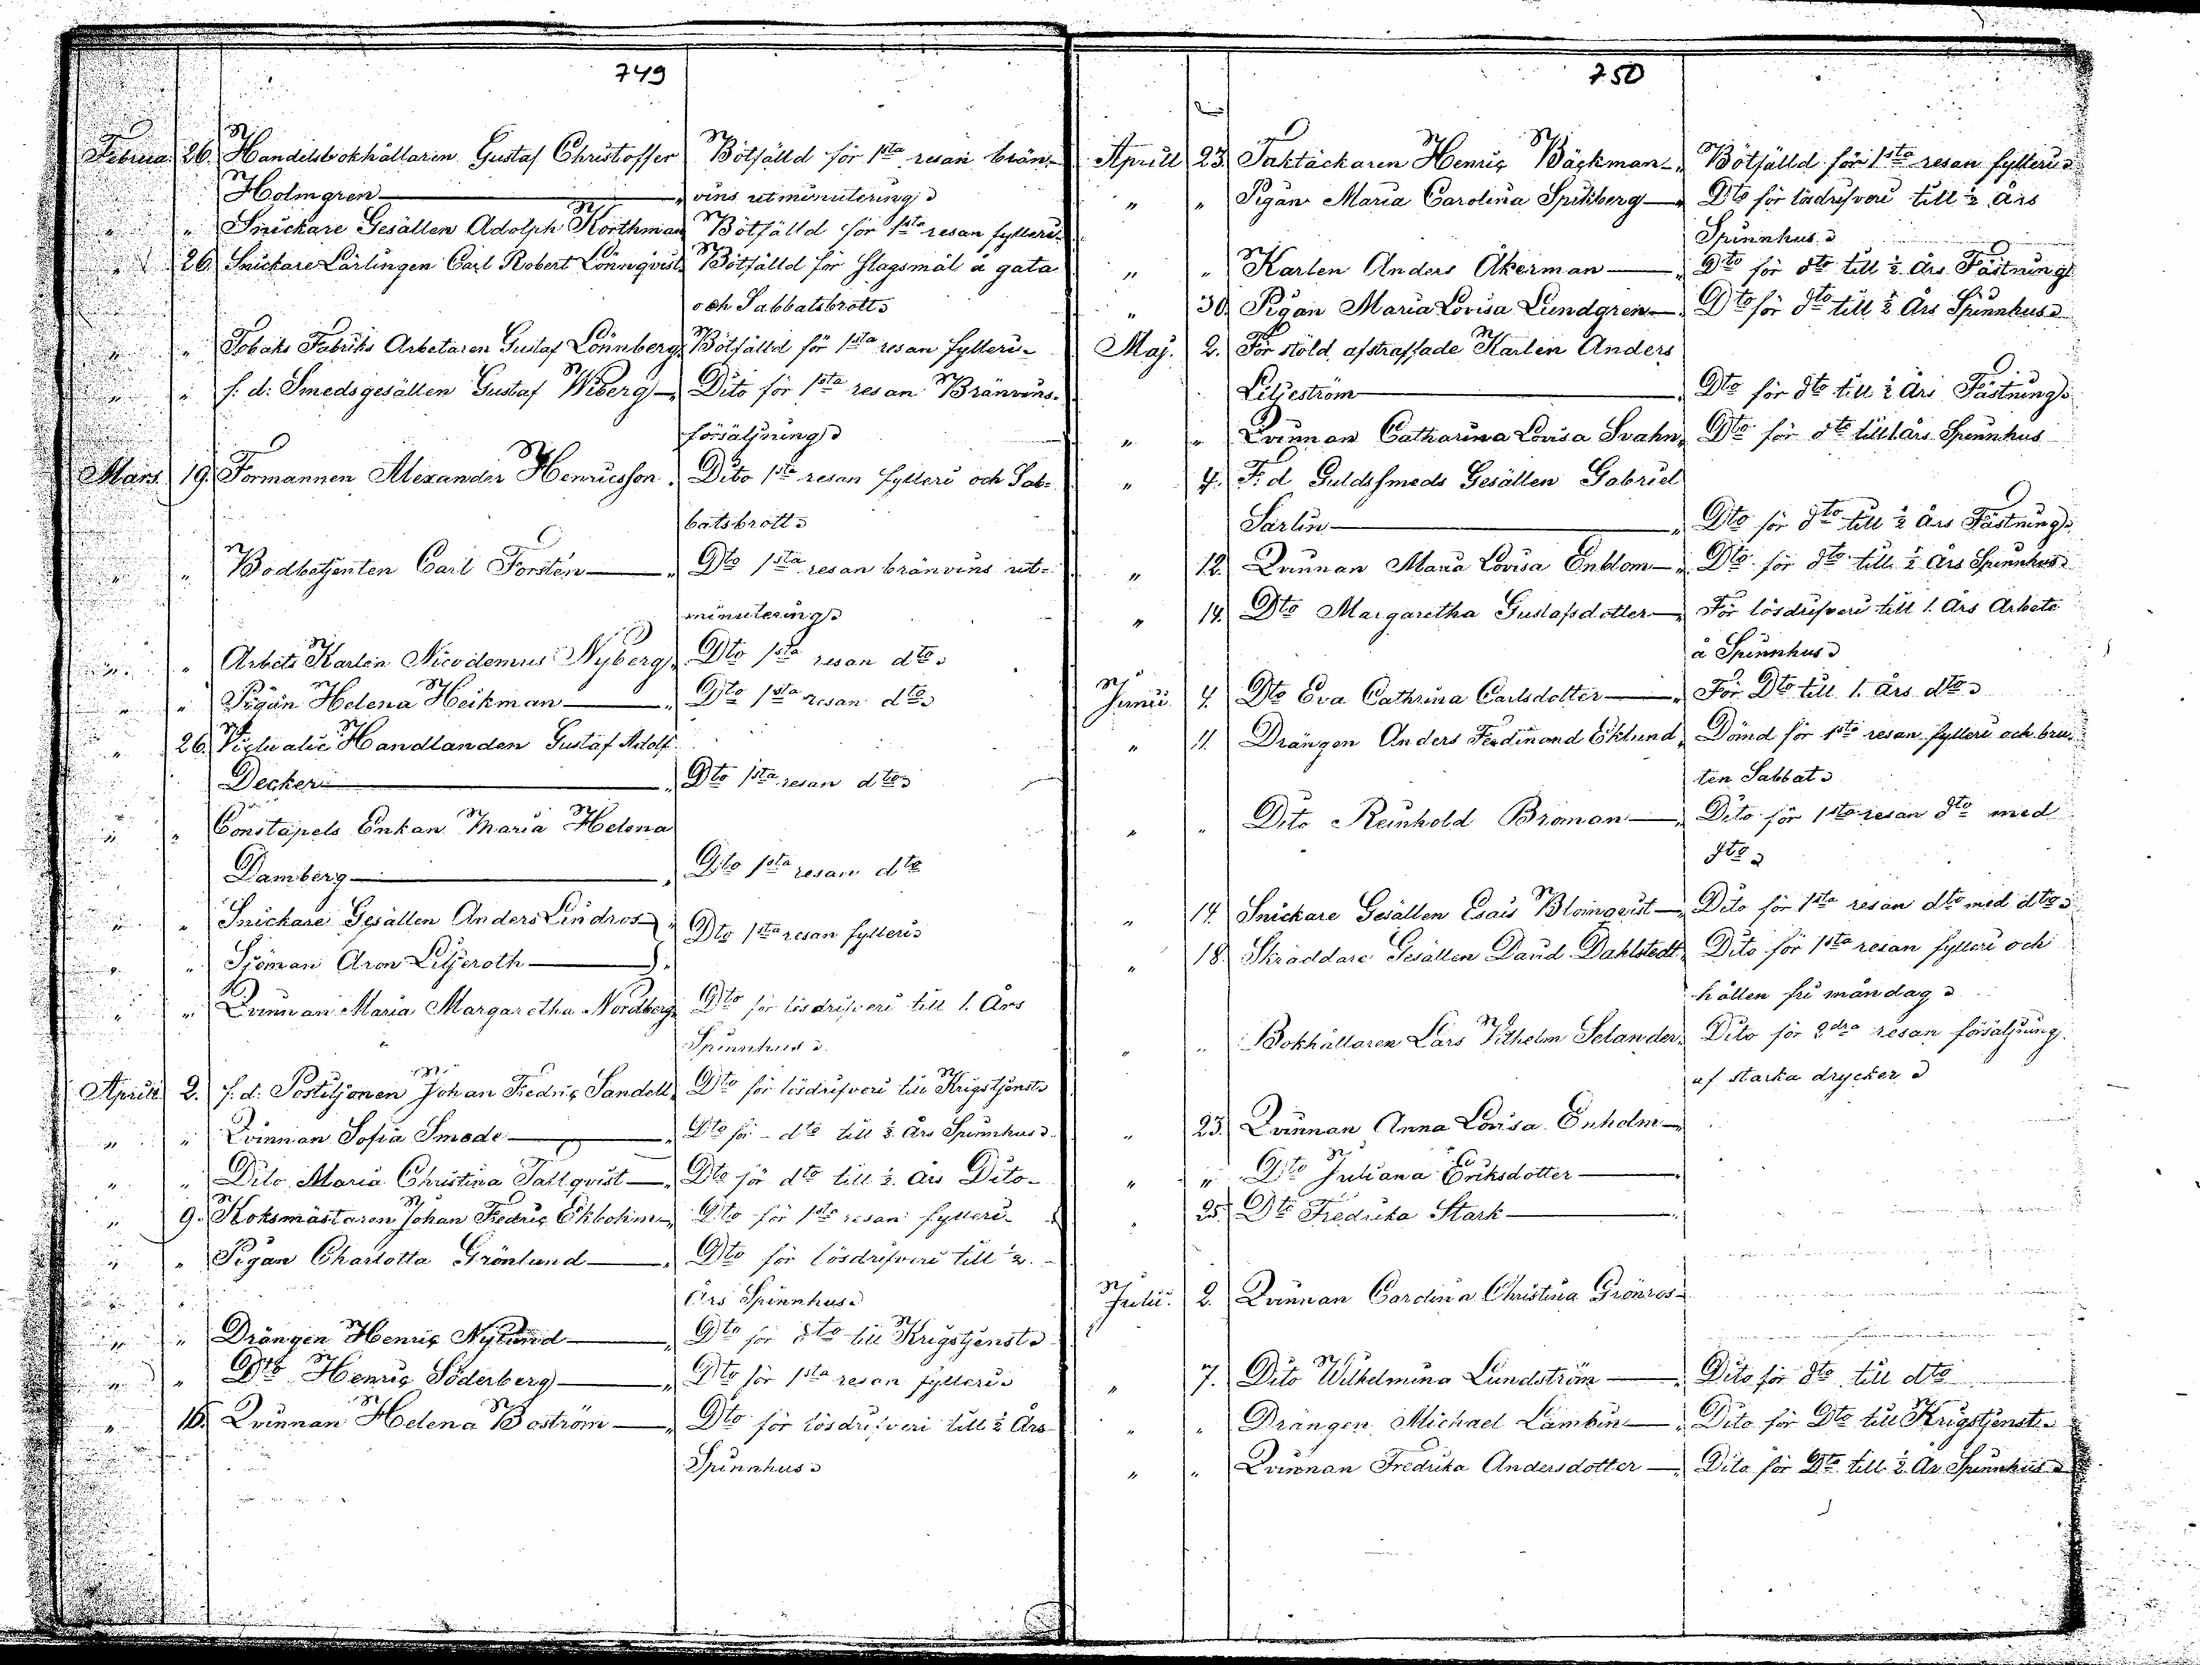 749
Februa. 26. Handelsbokhållaren Gustaf Christoffer Bötfälld för 1sta resan brän-
Holmgren vins utminutering
" " Snickare Gesällen Adolph Korthman Bötfälld för 1sta resan fylleri
" 26. Snickare Lärlingen Carl Robert Lönnqvist Bötfälld för slagsmål å gata
och Sabbatsbrott
" " Tobaks Fabriks Arbetaren Gustaf Lönnberg Bötfälld för 1sta resan fylleri
" " f: d: Smedsgesällen Gustaf Wiberg Dito för 1sta resan Bränvins-
försäljning
Mars 19. Formannen Alexander Henricsson Dito 1sta resan fylleri och Sab-
batsbrott
" Bodbetjenten Carl Forstén Dto 1sta resan bränvins ut-
minutering
" " Arbets Karlen Nicodemus Nyberg Dto 1sta resan dto
" " Pigan Helena Heikman Dto 1sta resan dto
" 26. Victualie Handlanden Gustaf Adolf
Decker Dto 1sta resan dto
" " Constapels Enkan Maria Helena
Damberg Dito 1sta resan dto
" " Snickare Gesällen Anders Lindros Dto 1sta resan fylleri
" " Sjöman Aron Liljeroth
" " Qvinnan Maria Margaretha Nordberg Dto för lösdrifveri till 1. Års
Spinnhus
Aprill 2. f. d: Postiljonen Johan Fredric Sandell Dto för lösdrifveri till Krigstjenst
" " Qvinnan Sofia Smede Dto för dto till ½ Års Spinnhus
" " Dito Maria Christina Tallqvist Dto för dto till ½ Års Dito
" 9. Koksmästaren Johan Fredric Ekbohm Dito för 1sta resan fylleri
" " Pigan Charlotta Grönlund Dto för lösdrifveri till ½
Års Spinnhus
" " Drängen Henric Nylund Dto för dto till Krigstjenst
" " Dto Henric Söderberg Dto för 1sta resan fylleri
" 16. Qvinnan Helena Boström Dto för lösdrifveri till ½ Års
Spinnhus
750
Aprill 23. Taktäckaren Henric Bäckman Bötfälld för 1sta resan fylleri
" " Pigan Maria Carolina Spikberg Dto för lösdrifveri till ½ Års
Spinnhus
" " Karlen Anders Åkerman Dto för dto till ½ Års Fästning
" 30. Pigan Maria Lovisa Lundgren Dto för dto till ½ Års Spinnhus
Maj. 2. För stöld afstraffade Karlen Anders
Liljeström Dto för dto till ½ Års Fästning
" " Qvinnan Catharina Lovisa Svahn Dto för dto till 1 års Spinnhus
" 7. F: d Guldsmeds Gesällen Gabriel
Sarlin Dto för dto till ½ Års Fästning
" 12. Qvinnan Maria Lovisa Enblom Dto för dto till ½ Års Spinnhus
" 14. Dto Margaretha Gustafsdotter För lösdrifveri till 1. Års Arbete
å Spinnhus
Junii 4. Dto Eva Cathrina Carlsdotter För Dto till 1. Års dto
" 11. Drängen Anders Ferdinand Eklund Dömd för 1sta resan fylleri och bru-
ten Sabbat
" " Dito Reinhold Broman Dito för 1sta resan dto med
dto
" 14. Snickare Gesällen Esais Blomqvist Dito för 1sta resan dto med dto
" 18. Skräddare Gesällen David Dahlstedt Dito för 1sta resan fylleri och
hållen fri måndag
" " Bokhållaren Lars Vilhelm Selander Dito för 2dra resan försäljning
af starka drycker
" 23. Qvinnan Anna Lovisa Enholm
" " Dto Juliana Eriksdotter
" 25. Dto Fredrika Stark
Julii. 2. Qvinnan Carolina Christina Grönros
" 7. Dito Wilhelmina Lundström Dito för dto till dto
" " Drängen Michael Lambin Dito för Dto till Krigstjenst
" " Qvinnan Fredrika Andersdotter Dito för Dto till ½ Års Spinnhus